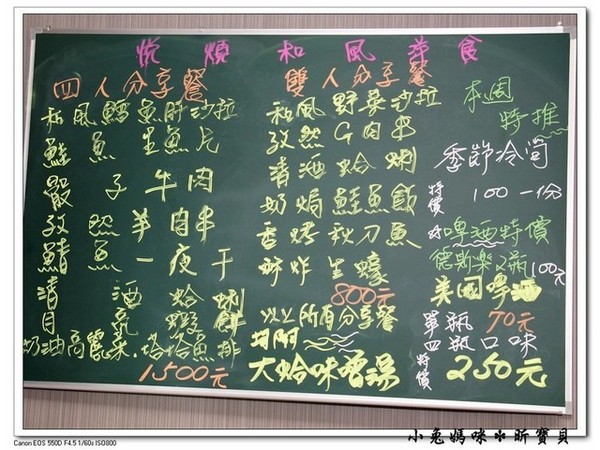 悅煩和風洋食
四人分享餐
和風鱈魚肝沙拉
鮭魚生魚片
骰子牛肉
孜然羊肉串
鯖魚一夜干
清酒蛤蜊
月亮蝦餅
奶油高麗菜.塔塔魚排
1500元
雙人分享餐
和風野菜沙拉
孜然G肉串
清酒蛤蜊
奶焗鮭魚飯
香烤秋刀魚
酥炸生蠔
800元
以上所有分享餐
均附
大蛤味噌湯
本週
特推
季節冷筍
特價
100一份
啤酒特價
德斯樂2瓶
100元
美國啤酒
單瓶70元
四瓶口味
特價
250元
Canon EOS 550D F4.5 1/60s ISO800
小兔媽咪＊昕寶貝